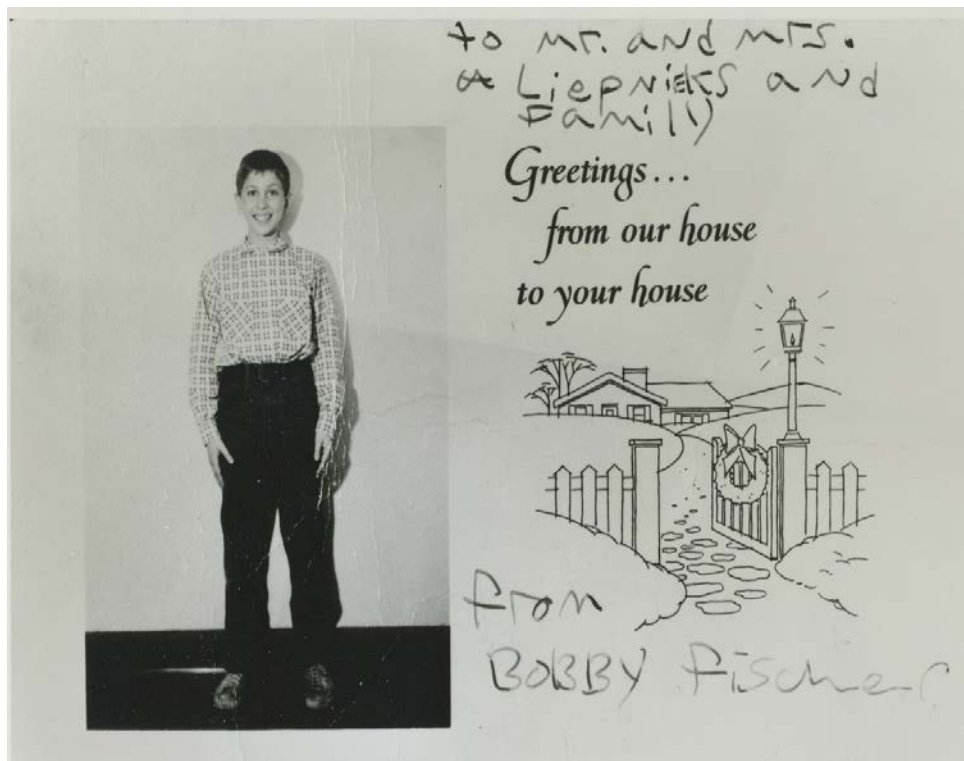 to mr. and mrs.
Liepnieks and
Family
Greetings...
from our house
to your house
from
BOBBY Fischer